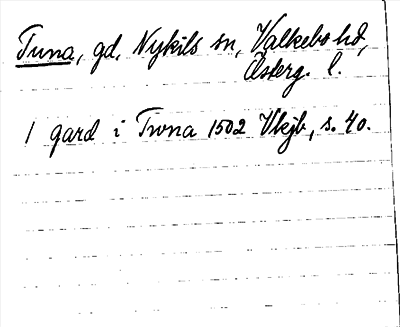 Tuna, gd, Nykils sn, Valkebo hd,
Österg. l.
1 gard i Twna 1502 Vkjb, s. 40.